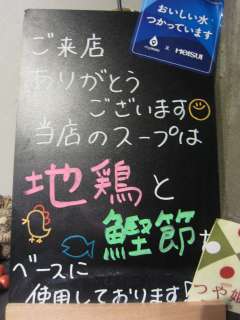 おいしい水、
つかっています
x Heisui
ご来店
ありがとう
ございます
当店のスープは
地鶏と
鰹節を
ベースに
使用しております!
つや姫